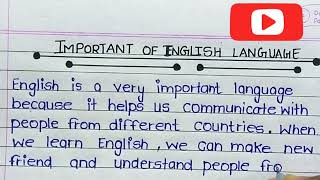 IMPORTANT OF ENGLISH LANGUAGE
English is a very important language
because it helps us communicate with
people from different countries. When
we learn English, we can make new
friend and understand people fro